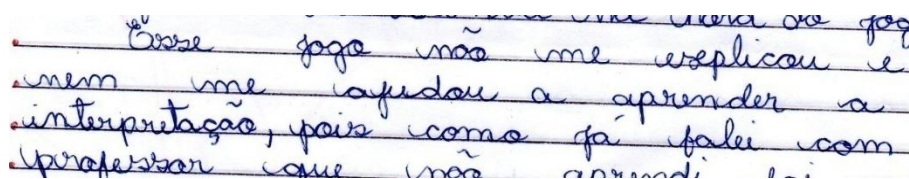 do jog
Esse jogo não me explicou e
nem me ajudou a aprender a
interpretação, pois como já falei com
professor que não aprendi